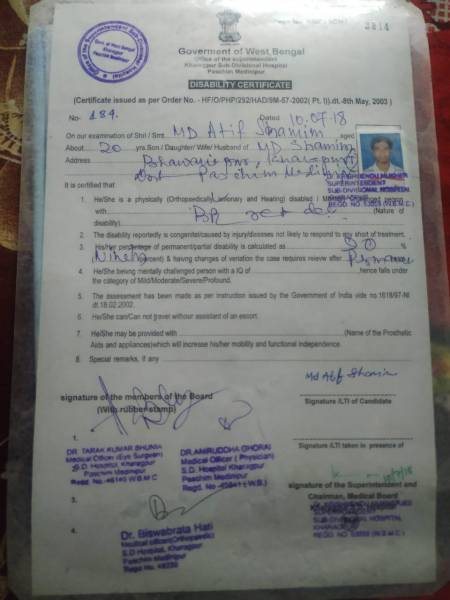 3814
Goverment of West Bengal
Office of the superintendent
Kharagpur Sub-Divisional Hospital
Paschim Medinipur
DISABILITY CERTIFICATE
(Certificate issued as per Order No. - HF/O/PHP/292/HAD/SM-57-2002( Pt. I)).dt.-8th May, 2003 )
No- 184. Dated 10.07.18
On our examination of Shri / Smt. MD Atif Shamim aged
About 20 yrs.Son / Daughter/ Wife/ Husband of MD Shamim
Address
Dost Paschim Medinipur
SUPERINTENDENT
SUB-DIVISIONAL HOSPITAL
It is certified that
1. He/She is a physically (Orthopaedically/
with (Nature of
disability)
2. The disability reportedly is congenital/caused by injury/diseases not likely to respond to any short of treatment.
3. His/Her percentage of permanent/partial disability is calculated as 90 %
Ninety percent) & having changes of variation the case requires reivew after
4. He/She bening mentally challenged person with a IQ of hence falls under
the category of Mild/Moderate/Severe/Profound.
5. The assessment has been made as per instruction issued by the Government of India vide no.1618/97-NI
dt.18.02.2002.
6. He/She can/Can not travel without assistant of an escort.
7. He/She may be provided with (Name of the Prosthetic
Aids and appliances)which will increase his/her mobility and functional independence.
8. Special remarks, if any
Md Atif Shamim
signature of the members of the Board
(With rubber stamp)
Signature /LTI of Candidate
1.
2.
DR. TARAK KUMAR BHUNIA
Medical Officer (Eye Surgeon)
S.D. Hospital, Kharagpur
Paschim Medinipur
DR.ANIRUDDHA GHORAI
Medical Officer ( Physician)
S.D. Hospital Kharagpur
Paschim Medinipur
Signature /LTI taken in presence of
3.
signature of the Superintendent and
Chairman, Medical Board
SUPERINTENDENT
SUB-DIVISIONAL HOSPITAL
4.
Dr. Biswabrata Hati
Medical officer(Orthopaedic)
S.D Hospital, Kharagpur
Paschim Medinipur